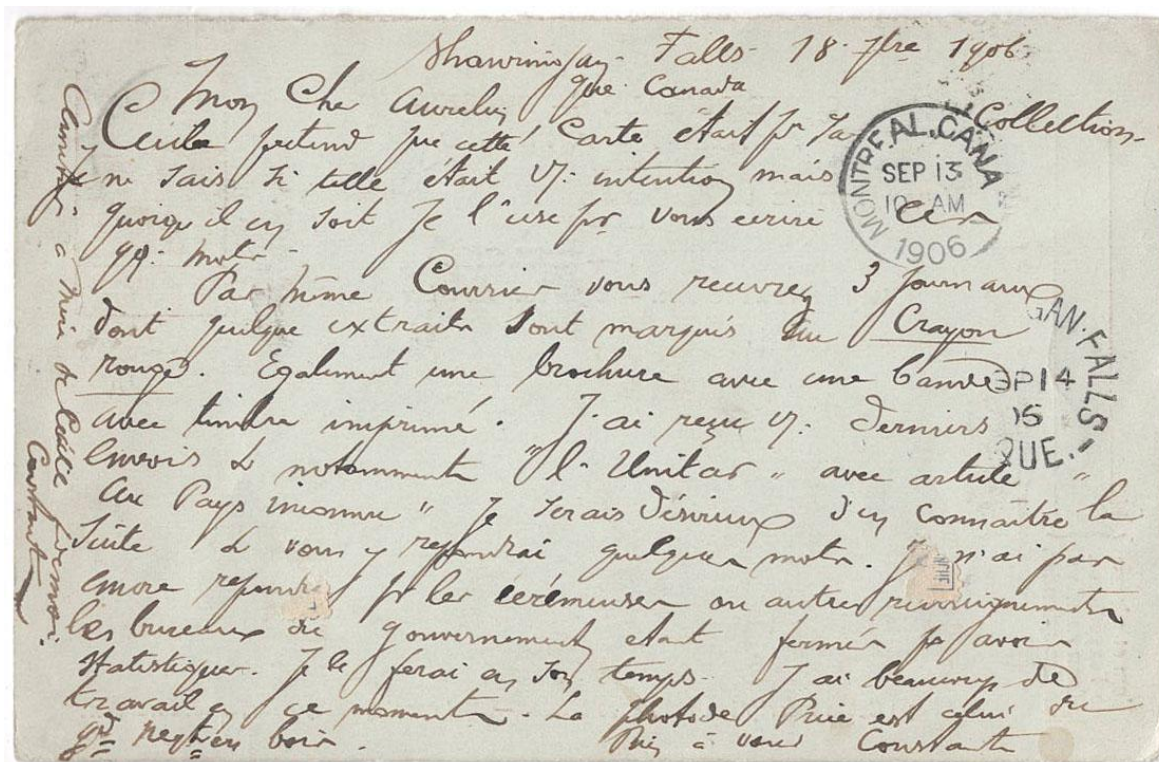 Shawinigan Falls 18 7bre 1906
Que Canada
Mon Cher Aurelien
Cecile pretend que cette Carte était pr sa Collection.
ne sais si telle était V. intention mais
quoiqu'il en soit je l'use pr vous ecrire ces
qq. mots
Par même Courrier vous recevrez 3 journaux
dont quelque extraits sont marqués au Crayon
rouge. Egalement une brochure avec une bande
avec timbre imprimé. J'ai reçu V. derniers
envois & notamment "l'Unitas" avec article "
Au Pays inconnu" Je serais désireux d'en connaitre la
suite & vous y repondrai quelques mots. Je n'ai pas
encore repondu pr les ou autres renseignements
les bureaux du gouvernement etant fermés pr avoir
statistiques. Je le ferai en son temps. J'ai beaucoup de
travail en ce moment. La photo de Price est celui du
gd negt en bois.
Bien à vous Constant
Amitiés à Mère de Cécile & de moi.
Constant
MONTREAL, CANADA
SEP 13
10 AM
1906
GAN FALLS
SP 14
06
QUE.